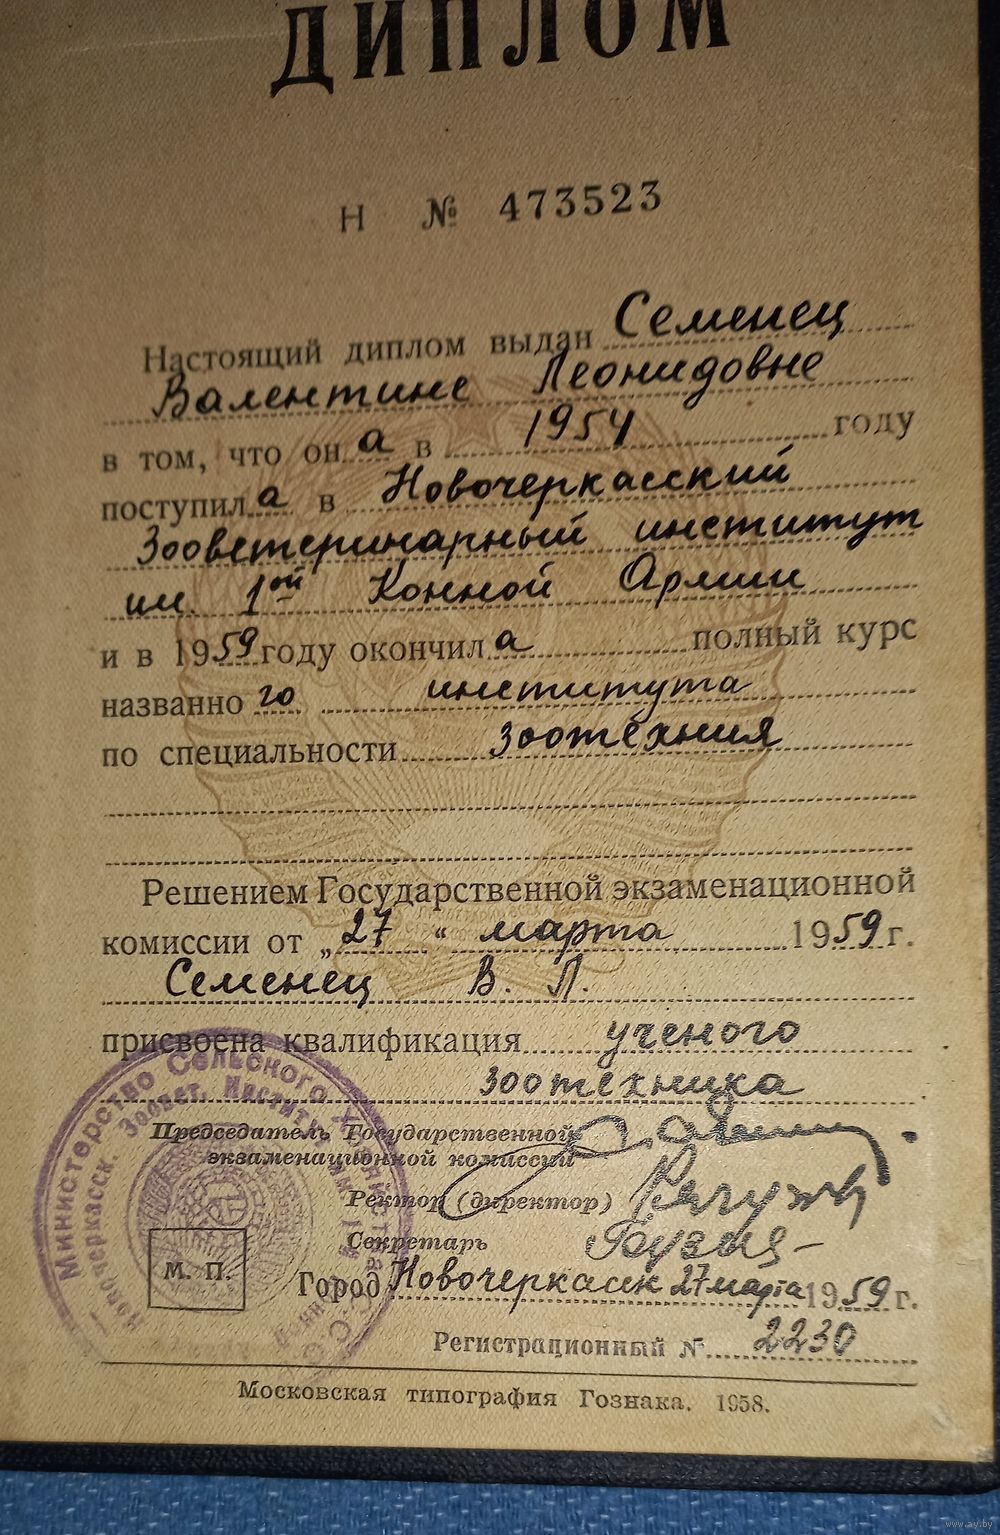 ДИПЛОМ
Н № 473523
Настоящий диплом выдан Семенец
Валентине Леонидовне
в том, что он а в 1954 году
поступил а в Новочеркасский
Зооветеринарный институт
им. 1ой Конной Армии
и в 1959 году окончил а полный курс
названно го института
по специальности зоотехния
Решением Государственной экзаменационной
комиссии от „27“ марта 1959 г.
Семенец В. Л.
присвоена квалификация ученого
зоотехника
Председатель Государственной
экзаменационной комиссии
Ректор (директор)
Секретарь
М. П.
Город Новочеркасск 27 марта 1959 г.
Регистрационный № 2230
Московская типография Гознака. 1958.
Министерство Сельского Хозяйства
Новочеркасск. Зоовет. Институт
www.ay.by